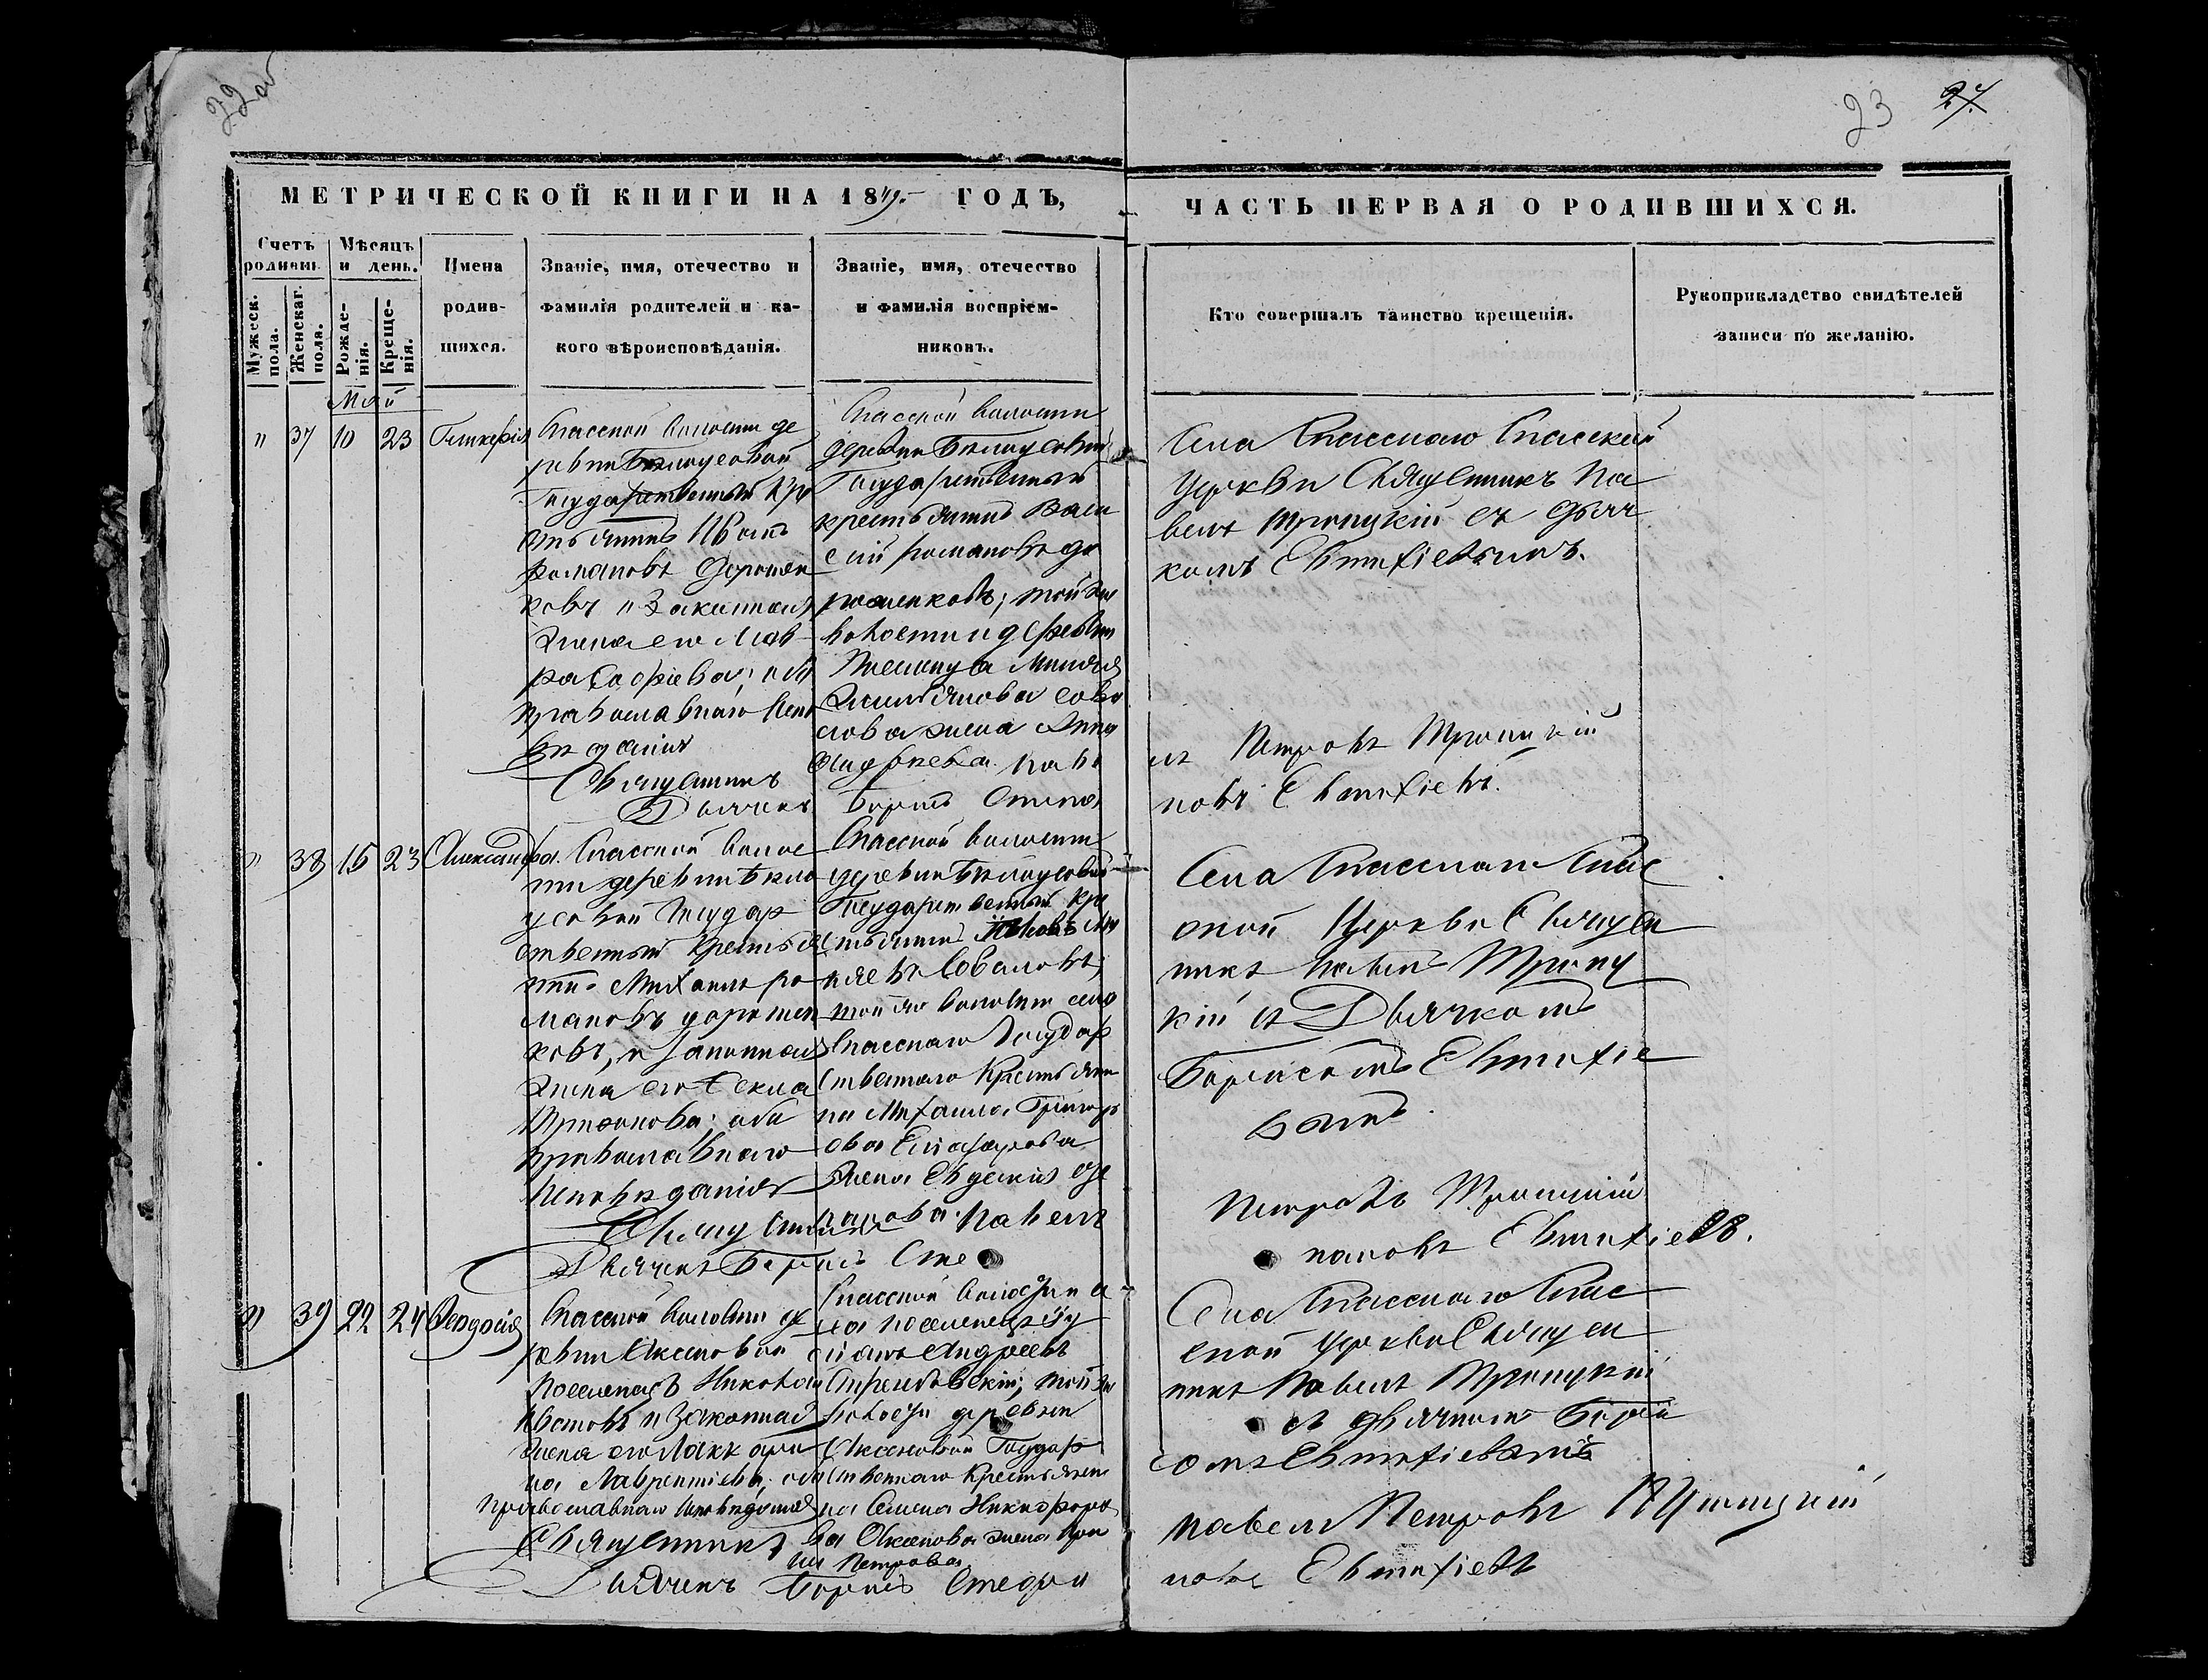 22об
23 27.
МЕТРИЧЕСКОЙ КНИГИ НА 1849. ГОДЪ,
ЧАСТЬ ПЕРВАЯ О РОДИВШИХСЯ.
Счетъ родивш.
Мужеск. пола.
Женскаг. пола.
Мѣсяцъ и день.
Рожденія.
Крещенія.
Имена
родив-
шихся.
Званіе, имя, отечество и
фамилія родителей и ка-
кого вѣроисповѣданія.
Званіе, имя, отечество
и фамилія воспріем-
никовъ.
Кто совершалъ таинство крещенія.
Рукоприкладство свидѣтелей
записи по желанію.
Май
" 37 10 23 Гликерія
Спасской волости де
ревни Бѣлоусовой
Государственный кре
стьянинъ Иванъ
Романовъ Дорошен
ковъ и законная
жена его Мав
ра
православнаго испо
вѣданія
Священникъ
Дьячекъ
Спасской волости
деревни Бѣлоусовой
Государственный
крестьянинъ Васи
лій Романовъ До
рошенковъ; той же
волости и деревни
жена Анна
Андреева Паве
Борисъ Степа
Села Спасскаго Спасской
Церкви Священникъ Па
велъ Троицкій съ дьяч
комъ Евтихіевымъ.
лъ Петровъ Троицкій
новъ Евтихіевъ.
" 38 15 23 Александра.
Спасской волос
ти деревни Бѣло
усовой Государ
ственный крестья
нинъ Михаилъ Ро
мановъ Дорошен
ковъ, и законная
жена его Фекла
оба
православнаго
исповѣданія
Священникъ
Дьячекъ Борисъ Сте
Спасской волости
деревни Бѣлоусовой
Государственный кре
стьянинъ
той же волости села
Спасскаго Государ
ственнаго крестьяни
на Михаила Григорь
ева
жена Евдокія Сте
панова. Павелъ
Села Спасскаго Спас
ской Церкви Священ
никъ Павелъ Троиц
кій съ Дьячкомъ
Борисомъ Евтихіе
вымъ.
Петровъ Троицкій
пановъ Евтихіевъ.
" 39 22 24 Феодосія
Спасской волости де
ревни Аксеновой
поселенецъ Николай
Ивановъ и законная
жена его
Лаврентіева, оба
православнаго исповѣданія
Священникъ
Дьячекъ
Спасской волости
Андреевъ
той же
волости деревни
Аксеновой Государ
ственнаго крестьяни
на Семена Никифоро
ва Аксенова жена
Петрова
Борисъ Стефа
Села Спасскаго Спас
ской Церкви Священ
никъ Павелъ Троицкій
съ дьячкомъ Бори
сомъ Евтихіевымъ
Павелъ Петровъ Троицкій
новъ Евтихіевъ